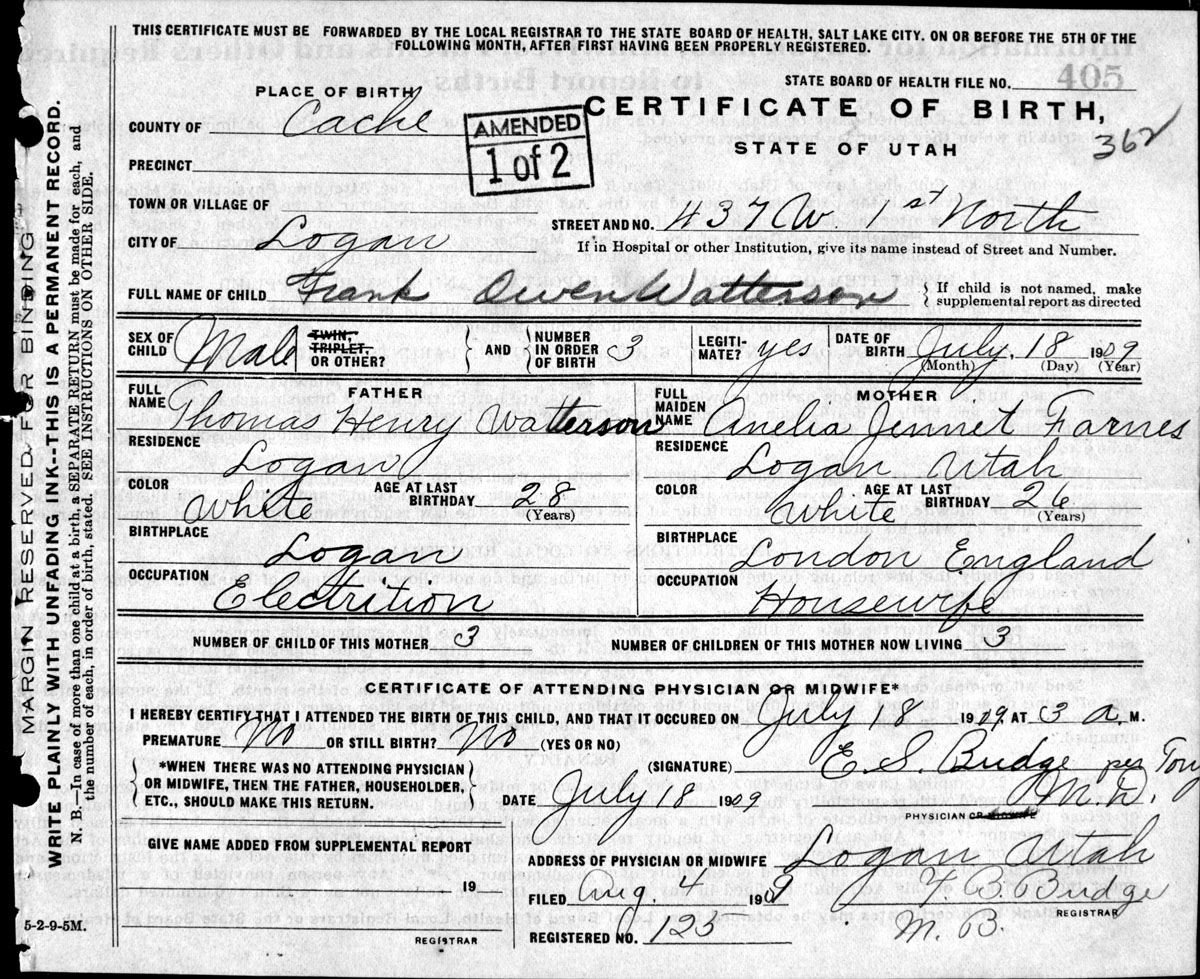 THIS CERTIFICATE MUST BE FORWARDED BY THE LOCAL REGISTRAR TO THE STATE BOARD OF HEALTH, SALT LAKE CITY. ON OR BEFORE THE 5TH OF THE
FOLLOWING MONTH, AFTER FIRST HAVING BEEN PROPERLY REGISTERED.
STATE BOARD OF HEALTH FILE NO. 405
PLACE OF BIRTH
CERTIFICATE OF BIRTH,
COUNTY OF Cache
AMENDED
1 of 2
STATE OF UTAH
362
PRECINCT
TOWN OR VILLAGE OF
STREET AND NO. 437 W. st North
CITY OF Logan
If in Hospital or other Institution, give its name instead of Street and Number.
FULL NAME OF CHILD Frank Owen Watterson
If child is not named, make
supplemental report as directed
SEX OF CHILD Male
TWIN, TRIPLET, OR OTHER?
AND NUMBER IN ORDER OF BIRTH 3
LEGITIMATE? yes
DATE OF BIRTH July, 18 1909
(Month) (Day) (Year)
FATHER
FULL NAME Thomas Henry Watterson
MOTHER
FULL MAIDEN NAME Amelia Jennet Farnes
RESIDENCE Logan
RESIDENCE Logan Utah
COLOR White AGE AT LAST BIRTHDAY 28 (Years)
COLOR White AGE AT LAST BIRTHDAY 26 (Years)
BIRTHPLACE Logan
BIRTHPLACE London England
OCCUPATION Electrition
OCCUPATION Housewife
NUMBER OF CHILD OF THIS MOTHER 3
NUMBER OF CHILDREN OF THIS MOTHER NOW LIVING 3
CERTIFICATE OF ATTENDING PHYSICIAN OR MIDWIFE*
I HEREBY CERTIFY THAT I ATTENDED THE BIRTH OF THIS CHILD, AND THAT IT OCCURED ON July 18 1909, AT 3 a. M.
PREMATURE No OR STILL BIRTH? No (YES OR NO)
*WHEN THERE WAS NO ATTENDING PHYSICIAN
OR MIDWIFE, THEN THE FATHER, HOUSEHOLDER,
ETC., SHOULD MAKE THIS RETURN.
(SIGNATURE) E. S. Budge per
M. D.
DATE July 18 1909
PHYSICIAN OR MIDWIFE
GIVE NAME ADDED FROM SUPPLEMENTAL REPORT
19
REGISTRAR
ADDRESS OF PHYSICIAN OR MIDWIFE Logan Utah
FILED Aug. 4 1909
Budge
REGISTRAR
REGISTERED NO. 123
5-2-9-5M.
MARGIN RESERVED FOR BINDING
WRITE PLAINLY WITH UNFADING INK--THIS IS A PERMANENT RECORD.
N. B.—In case of more than one child at a birth, a SEPARATE RETURN must be made for each, and
the number of each, in order of birth, stated. SEE INSTRUCTIONS ON OTHER SIDE.